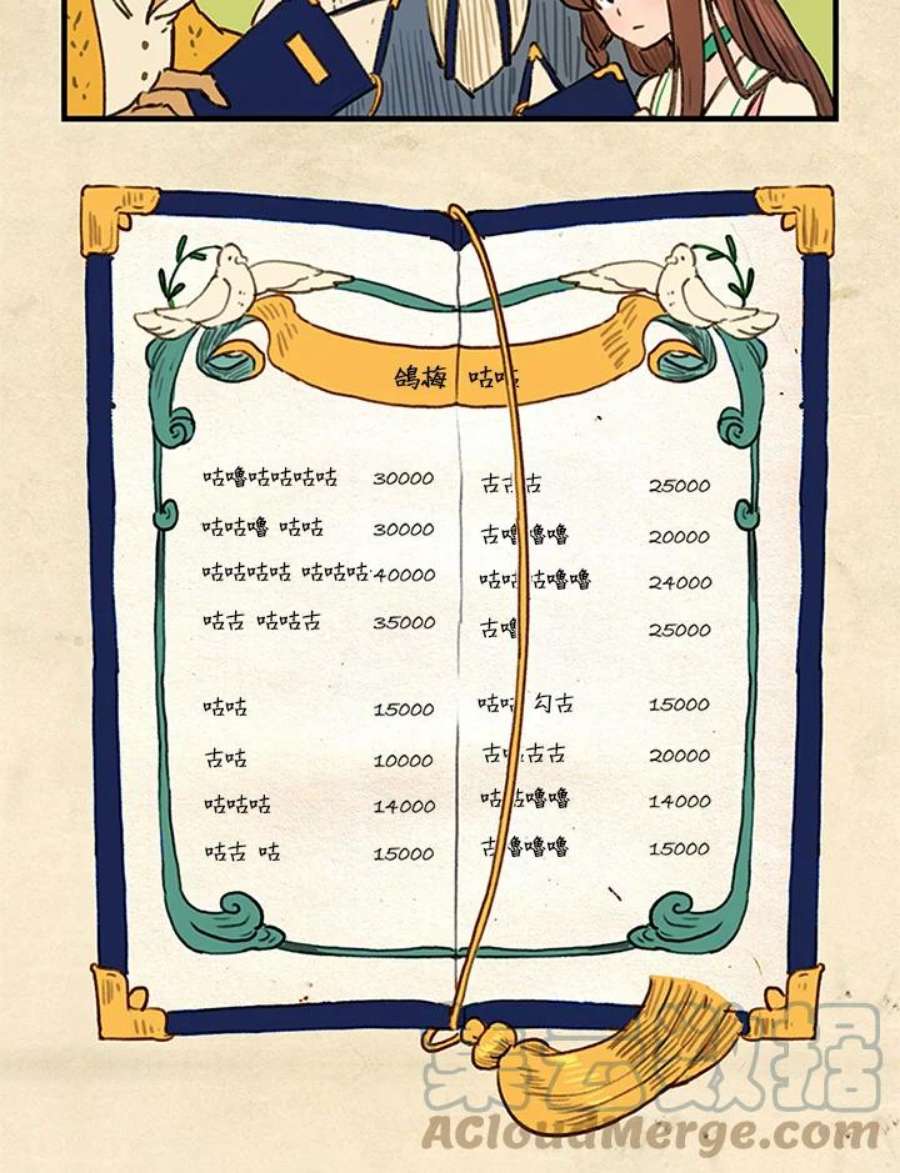 鴿梅 咕咕
咕嚕咕咕咕咕 30000
咕咕嚕 咕咕 30000
咕咕咕咕 咕咕咕 40000
咕古 咕咕古 35000
咕咕 15000
古咕 10000
咕咕咕 14000
咕古 咕 15000
古古古 25000
古嚕嚕嚕 20000
咕咕咕嚕嚕 24000
古嚕 25000
咕咕 勾古 15000
古咕古古 20000
咕咕嚕嚕 14000
古嚕嚕嚕 15000
ACloudMerge.com